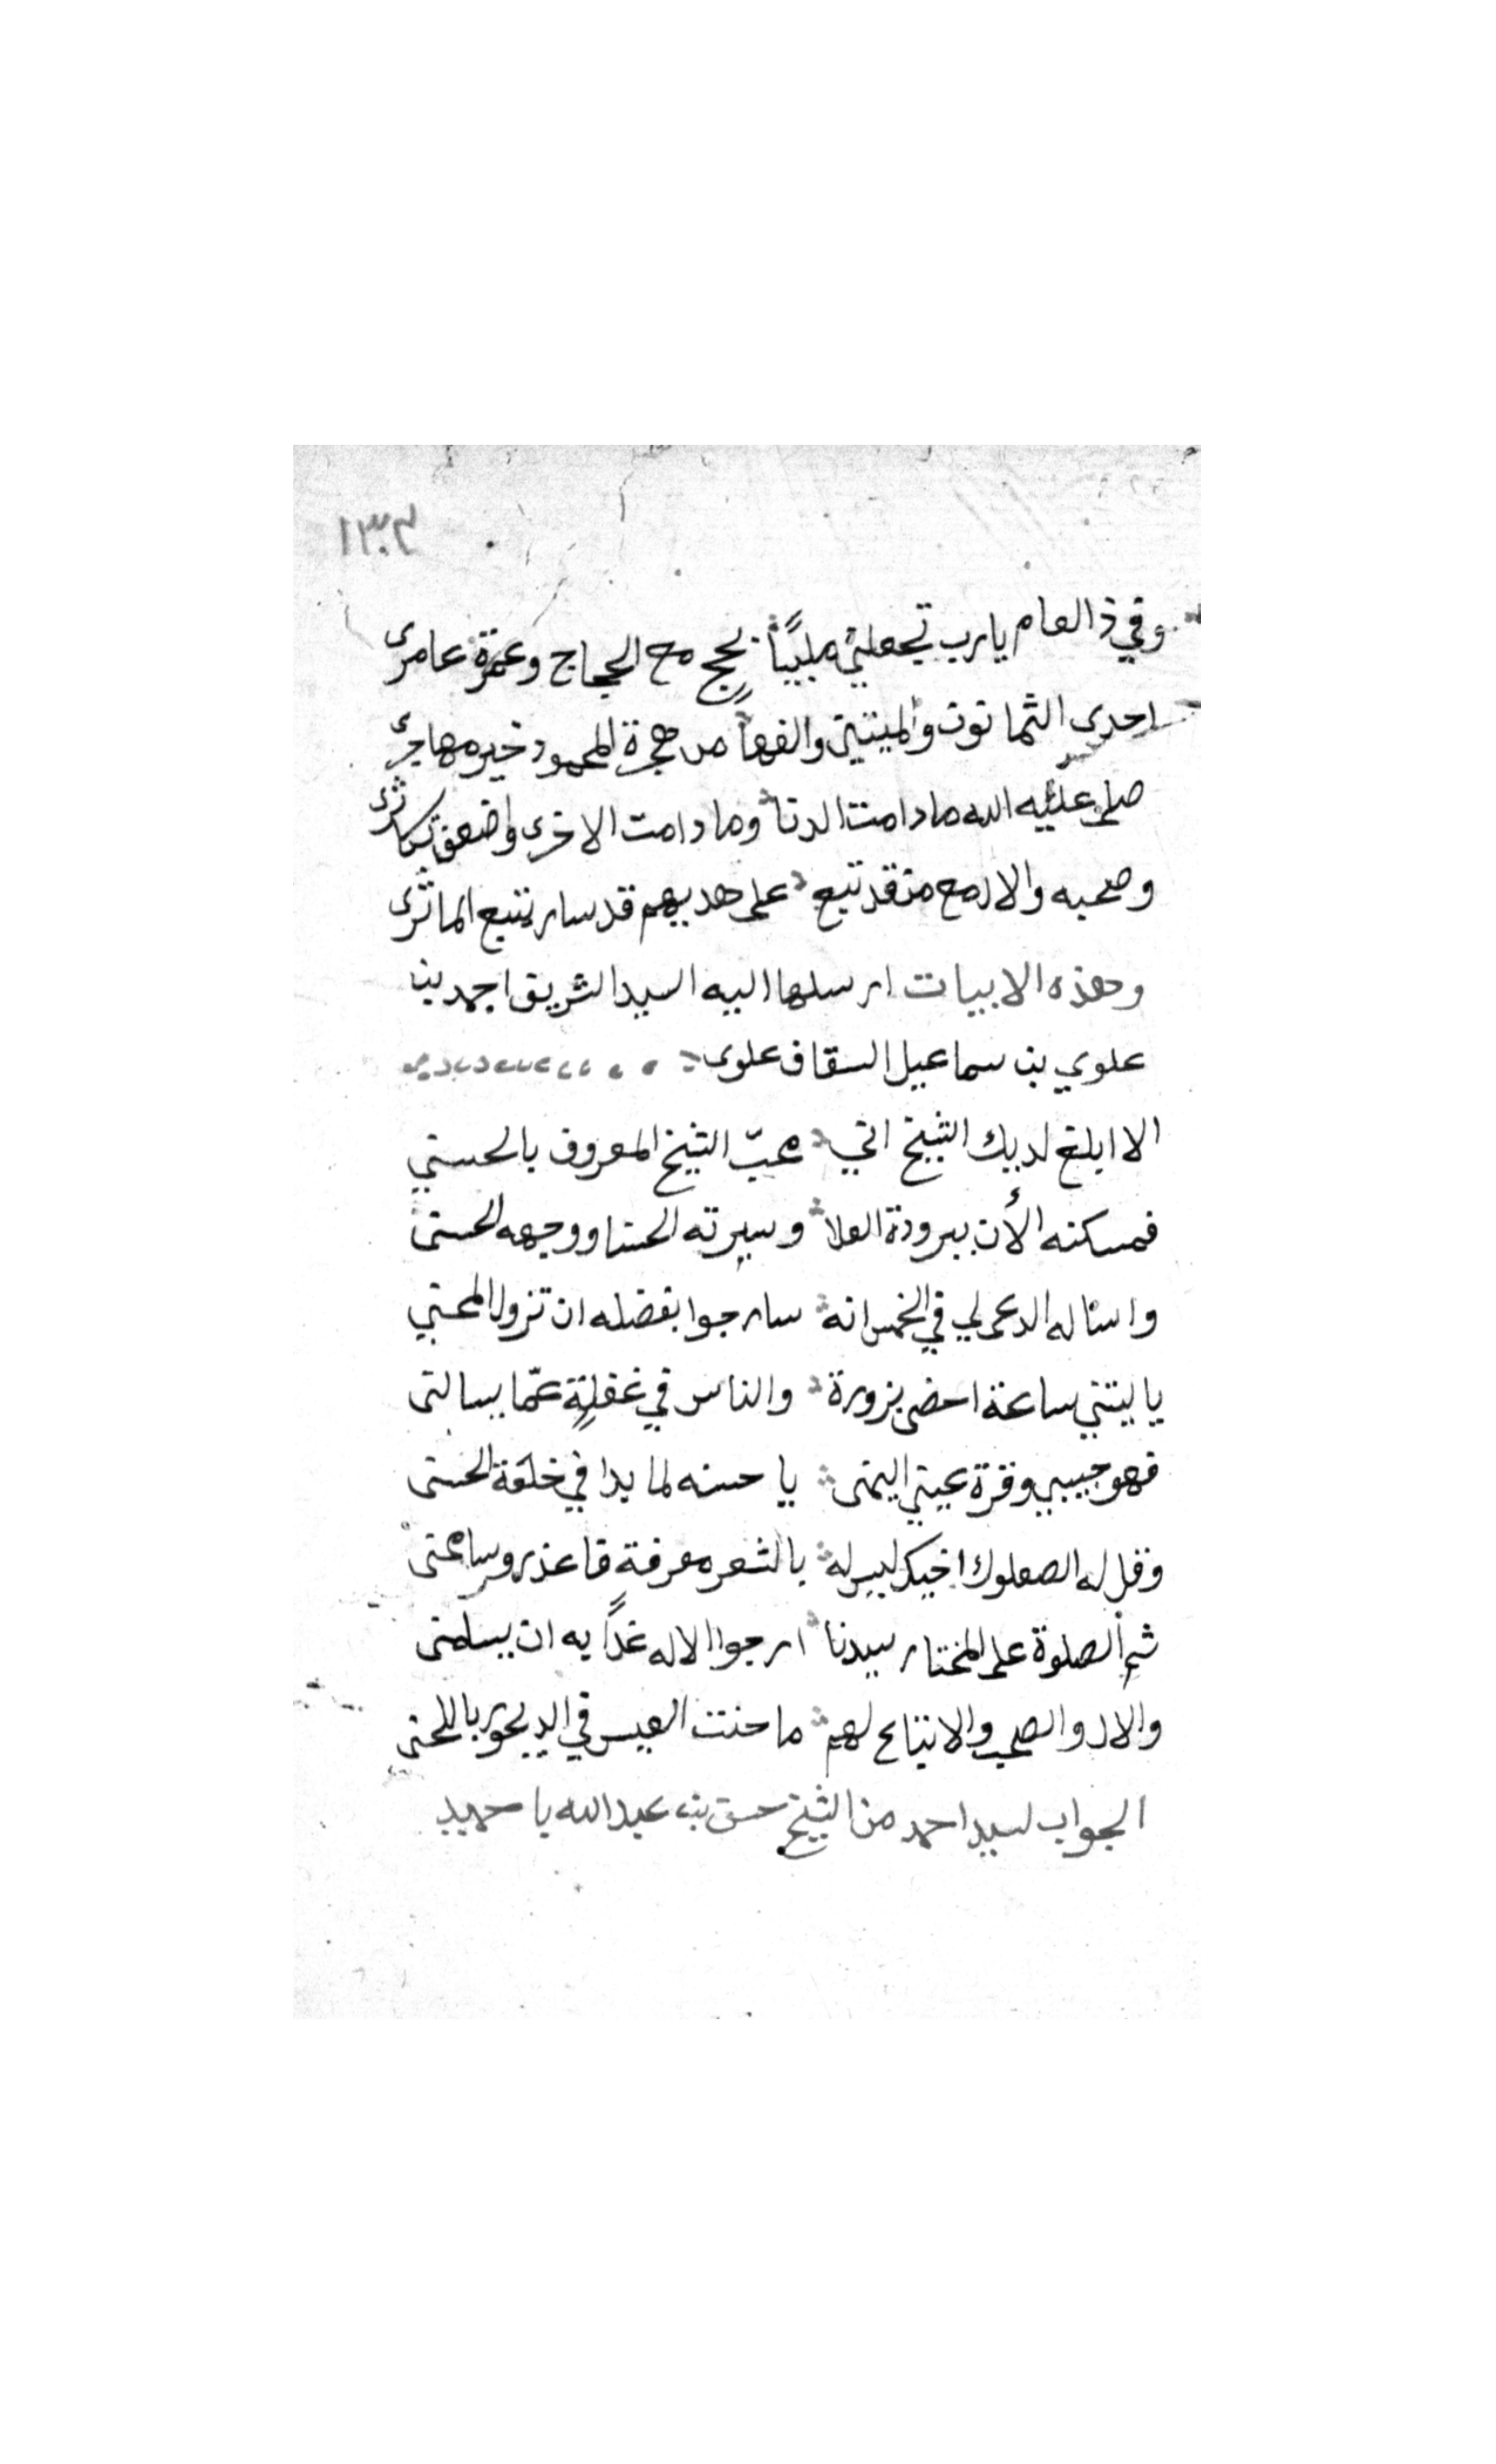 ١٣٠٣
وفي ذا العام يارب تجعلني ملبيًا بحج مع الحجاج وعمرة عامرى
احدى الثمانون والميتين والفها من هجرة المحمود خير مهاجرى
صلى عليه الله ما دامت الدنا وما دامت الاخرى واضعف تكاثرى
وصحبه والال مع من قد تبع على هديهم قد سار يتبع الماثرى
وهذه الابيات ارسلها اليه السيد الشريف احمد بن
علوي بن سماعيل السقاف علوى
الا ابلغ لديك الشيخ اني محبّ الشيخ المعروف بالحسني
فمسكنه الأن ببرودة العلا وسيرته الحسنا ووجهه الحسنى
واساله الدعى لي في الخمس انه سارجوا بفضله ان تزول المحني
يا ليتني ساعة احضى بزورة والناس في غفلةٍ عمّا يسالنى
فهو حبيبي وقرة عيني اليمنى يا حسنه لما بدا في خلقة الحسنى
وقل له الصعلوك اخيك ليس له بالشعر معرفةٍ فاعذر وسامحنى
ثم الصلوة على المختار سيدنا ارجوا الاله غدًا به ان يسلمنى
والال والصحب والاتباع لهم ما حنت العيس في الديجور باللحنى
الجواب لسيد احمد من الشيخ حسن بن عبدالله باحميد